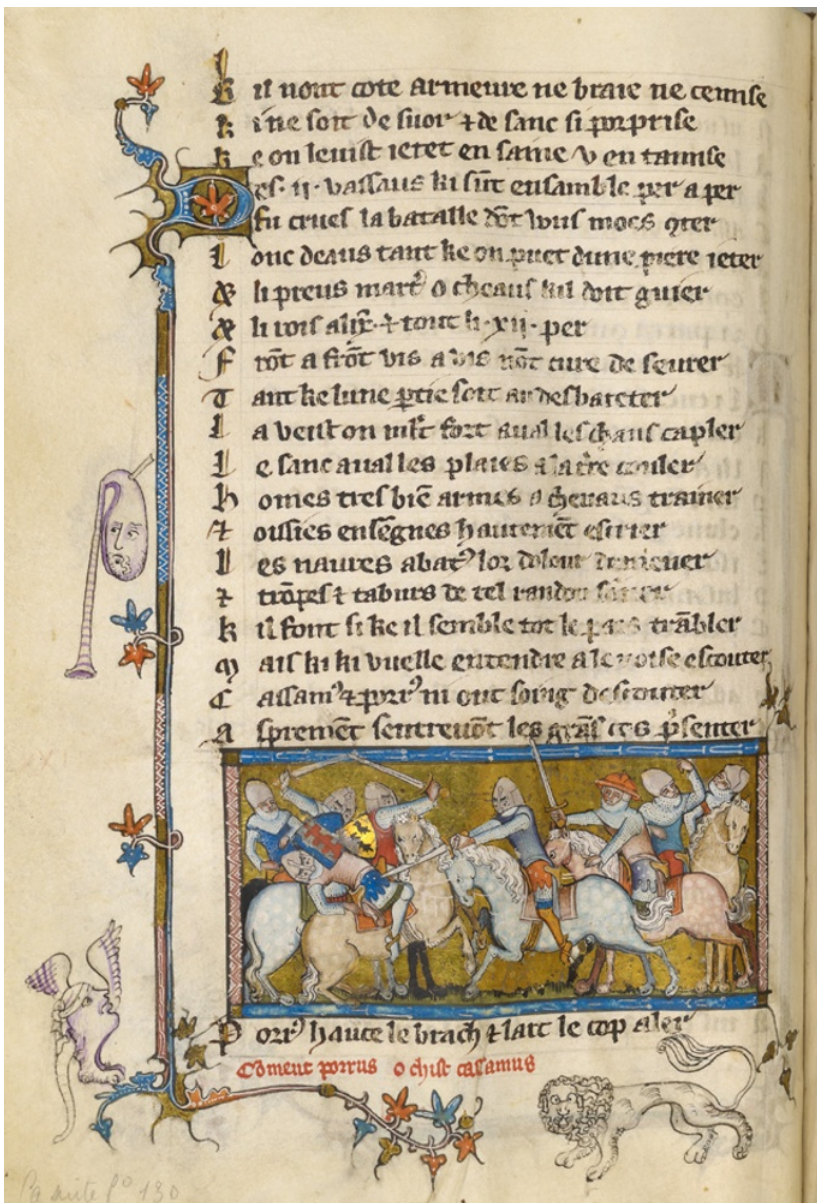 Kil nont cote armeure ne braie ne cemise
ki ne soit de suor ⁊ de sanc si porprise
ke on leuist ietet en saine v en tamise
Des·ii·vassaus ki sūt ensamble per a per
fu crues la batalle dōt vous moes ꝯter
Lonc deaus tant ke on puet dune piere ieter
& li preus marc̾ o cheaus kil doit guier
& li rois alix̄·⁊ tout li·xii·per
Frōt a frōt vis a vis nōt cure de seurer
Tant ke lune ꝑtie soit au desbareter
La veist on ml̄t fort aual les chans capler
Le sanc aual les plaies a la t̾re couler
homes tres biē armes a cheuaus trainer
⁊ ousies ensēgnes hautemēt escrier
Les naures abatꝰ lor dolour demener
⁊ trōpes ⁊ taburs de tel randon
kil font si ke il semble tot le pais trābler
Mais ki ki vuelle entendre a le noise escouter
Cassamꝰ ⁊ porrꝰ ni ont soing descouter
Aspremēt sentreuōt les grās cos p̄senter
Porrꝰ hauce le brach ⁊ lait le cop aler
Cōment porrus ochist casamus
La suite f° 130